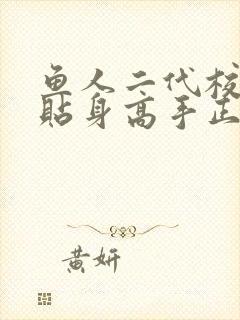 鱼人二代校
贴身高手正
黄妍